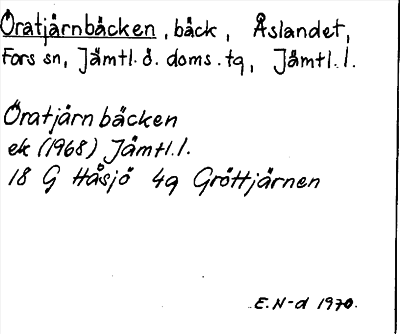 Öratjärnbäcken, bäck, Åslandet,
Fors sn, Jämtl. ö. doms. tg, Jämtl. l.
Öratjärnbäcken
ek (1968) Jämtl. l.
18 G Håsjö 4g Gröttjärnen
E. N-d 1970.